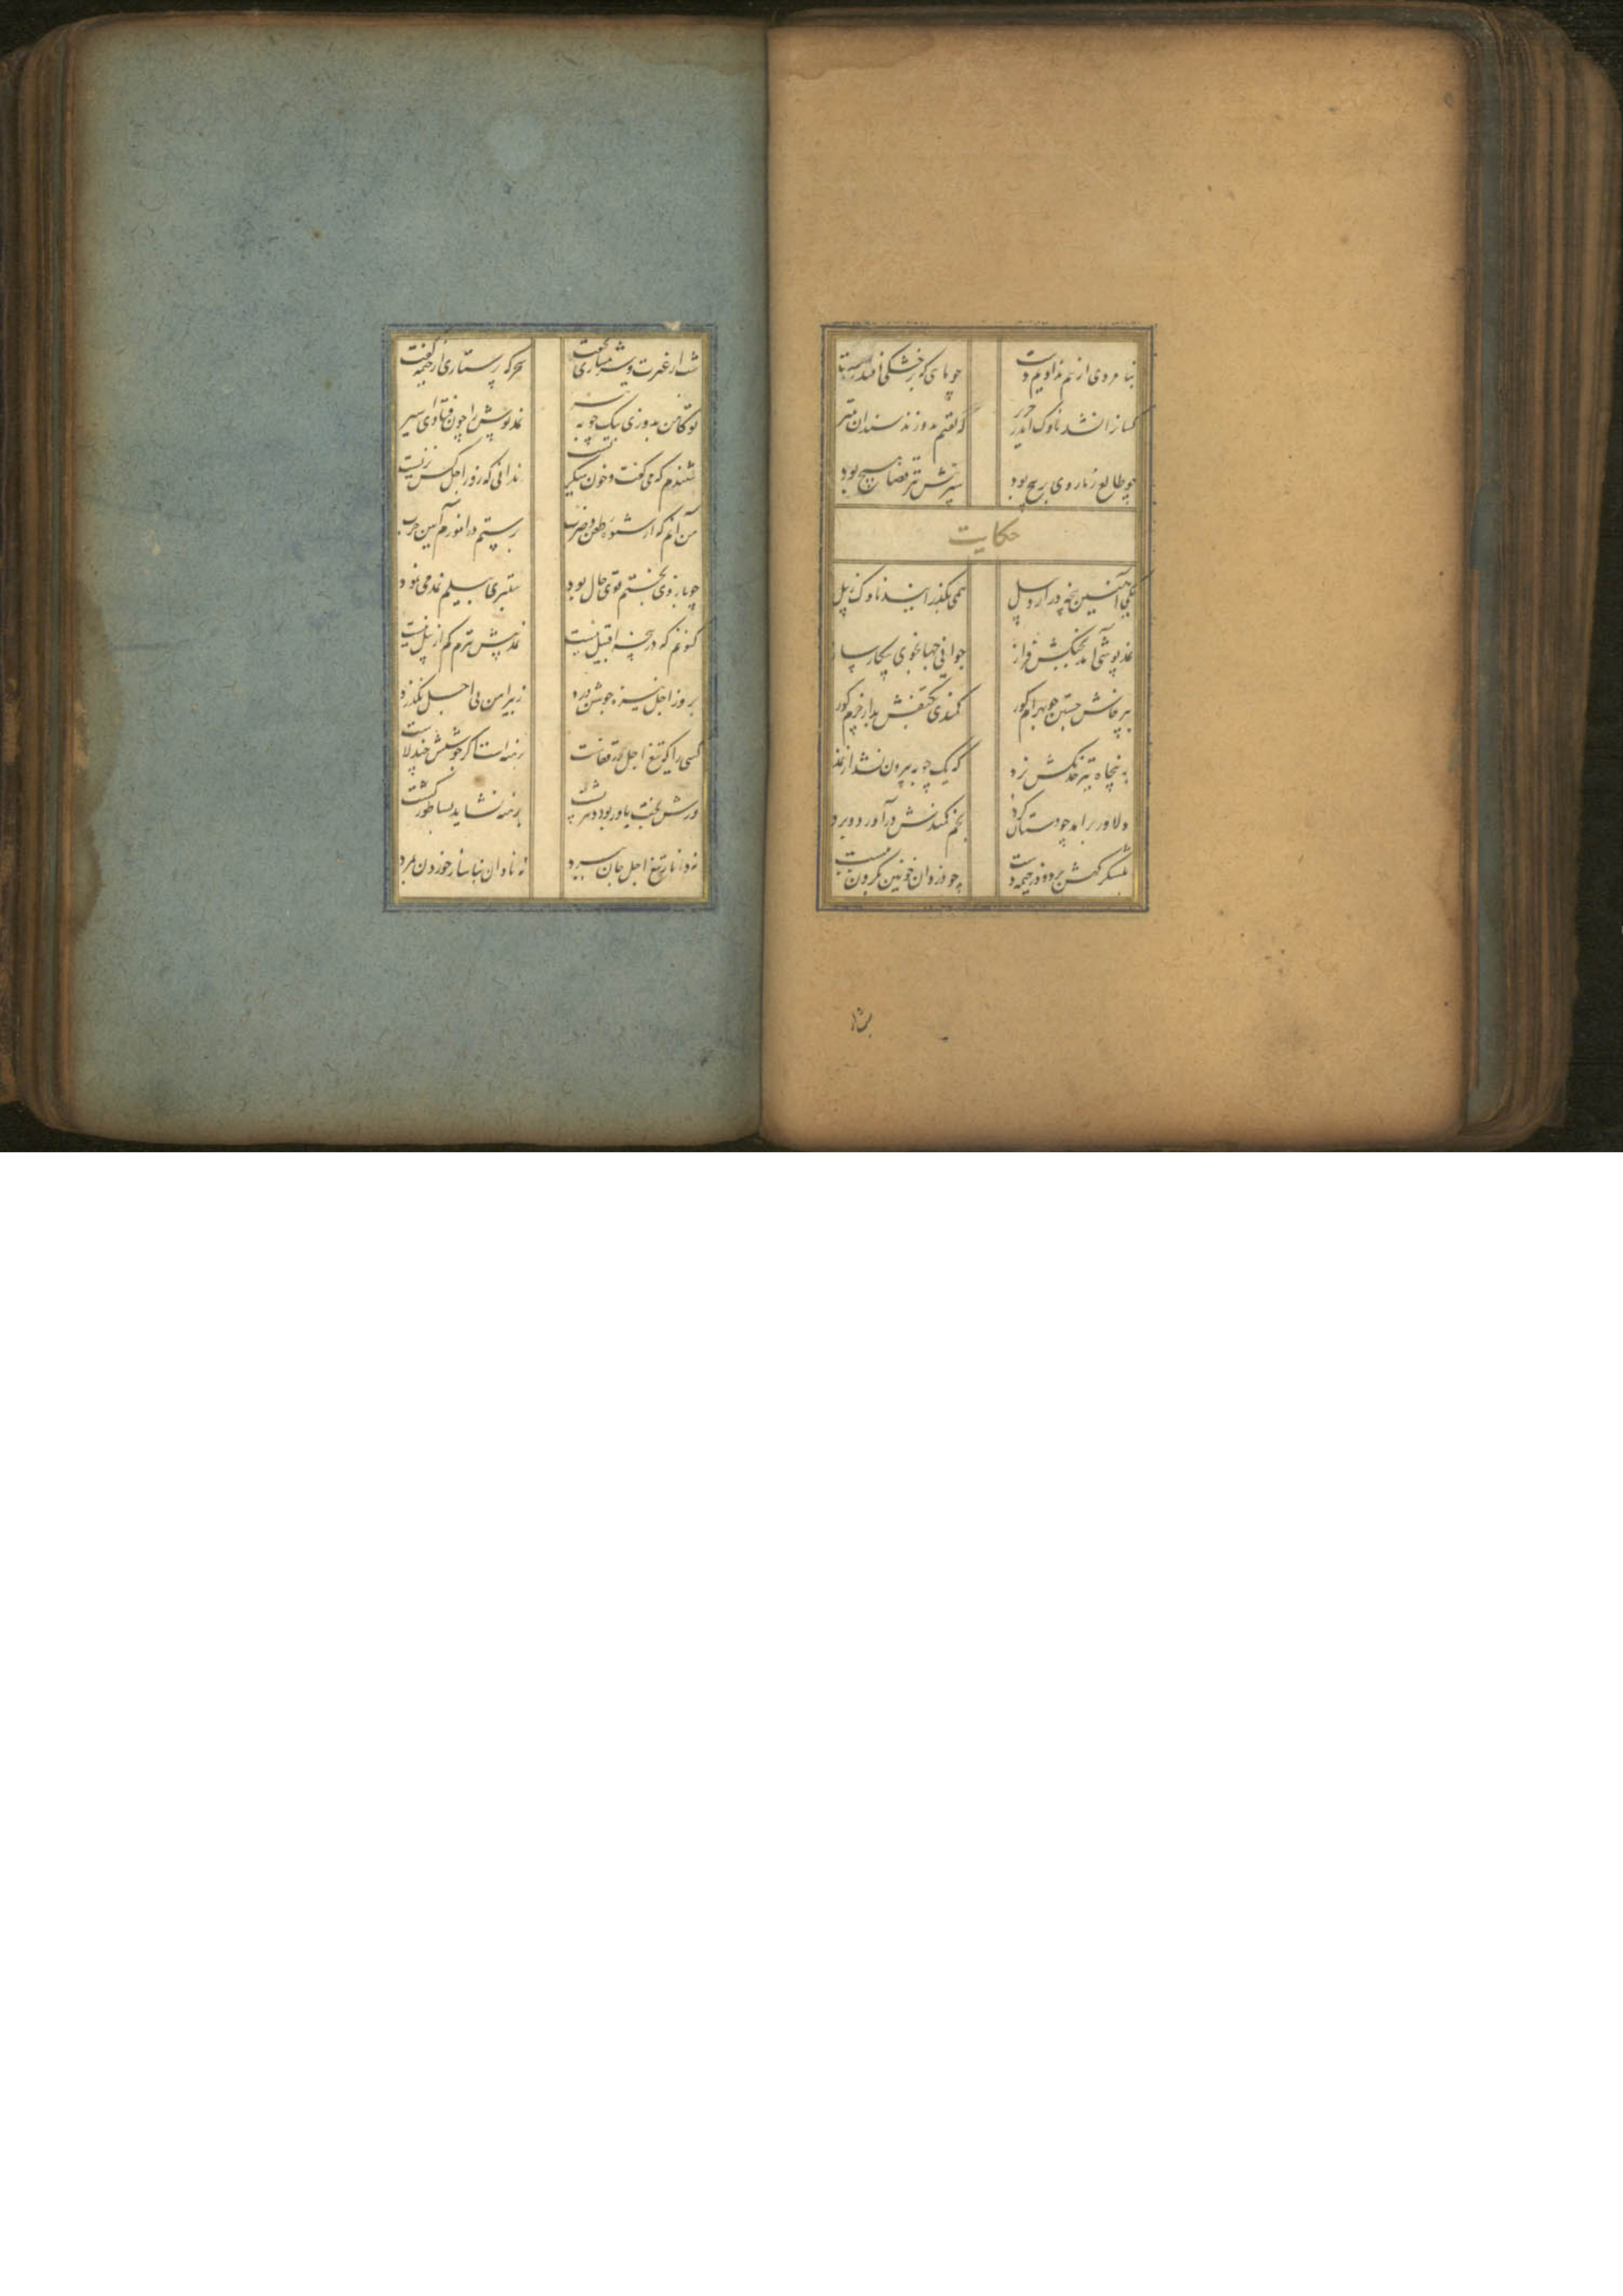 بنا مردی از هم ندادیم دست
چو ماهی که بر خشکی افتد ز شست
کسانرا نشد ناوک اندر حریر
که گفتم بدوزند سندان بتیر
چو طالع ز ما روی بر پیچ بود
سپر پیش تیر قضا هیچ بود
حکایت
یکی آهنین پنجه در اردبیل
همی بگذرانید ناوک ز پیل
نمد پوشی آمد بجنگش فراز
جوانی جهانجوی پیکار ساز
بپرخاش جستن چو بهرام گور
کمندی بکتفش بر از خرم گور
به پنجاه تیر خدنگش بزد
که یک چوبه بیرون نشد از نمد
دلاور برآمد چو دستان گرد
بخم کمندش در آورد و ببرد
بلشکر گهش برد و در خیمه دست
چو دزدان خونین بگردن ببست
شب از غیرت و شرمساری نخفت
سحرگه پرستاری از خیمه گفت
تو کآهن بدوزی بیک چوبه تیر
نمد پوش را چون فتادی اسیر
شنیدم که می گفت و خون میگریست
ندانی که روز اجل کس نزیست
من آنم که در شیوه طعن و ضرب
برستم در آموزم آیین حرب
چو بازوی بختم قوی حال بود
ستبری بیلم نمد می نمود
کنونم که در پنجه اقبیل نیست
نمد پیش تیرم کم از پیل نیست
بروز اجل نیزه جوشن درد
ز پیراهن بی اجل نگذرد
کسی را که تیغ اجل در قفاست
برهنه است اگر جوشنش چند لاست
ورش بخت یاور بود دهر پشت
برهنه نشاید بساطور کشت
نه دانا ز تیغ اجل جان ببرد
نه نادان بناساز خوردن بمرد